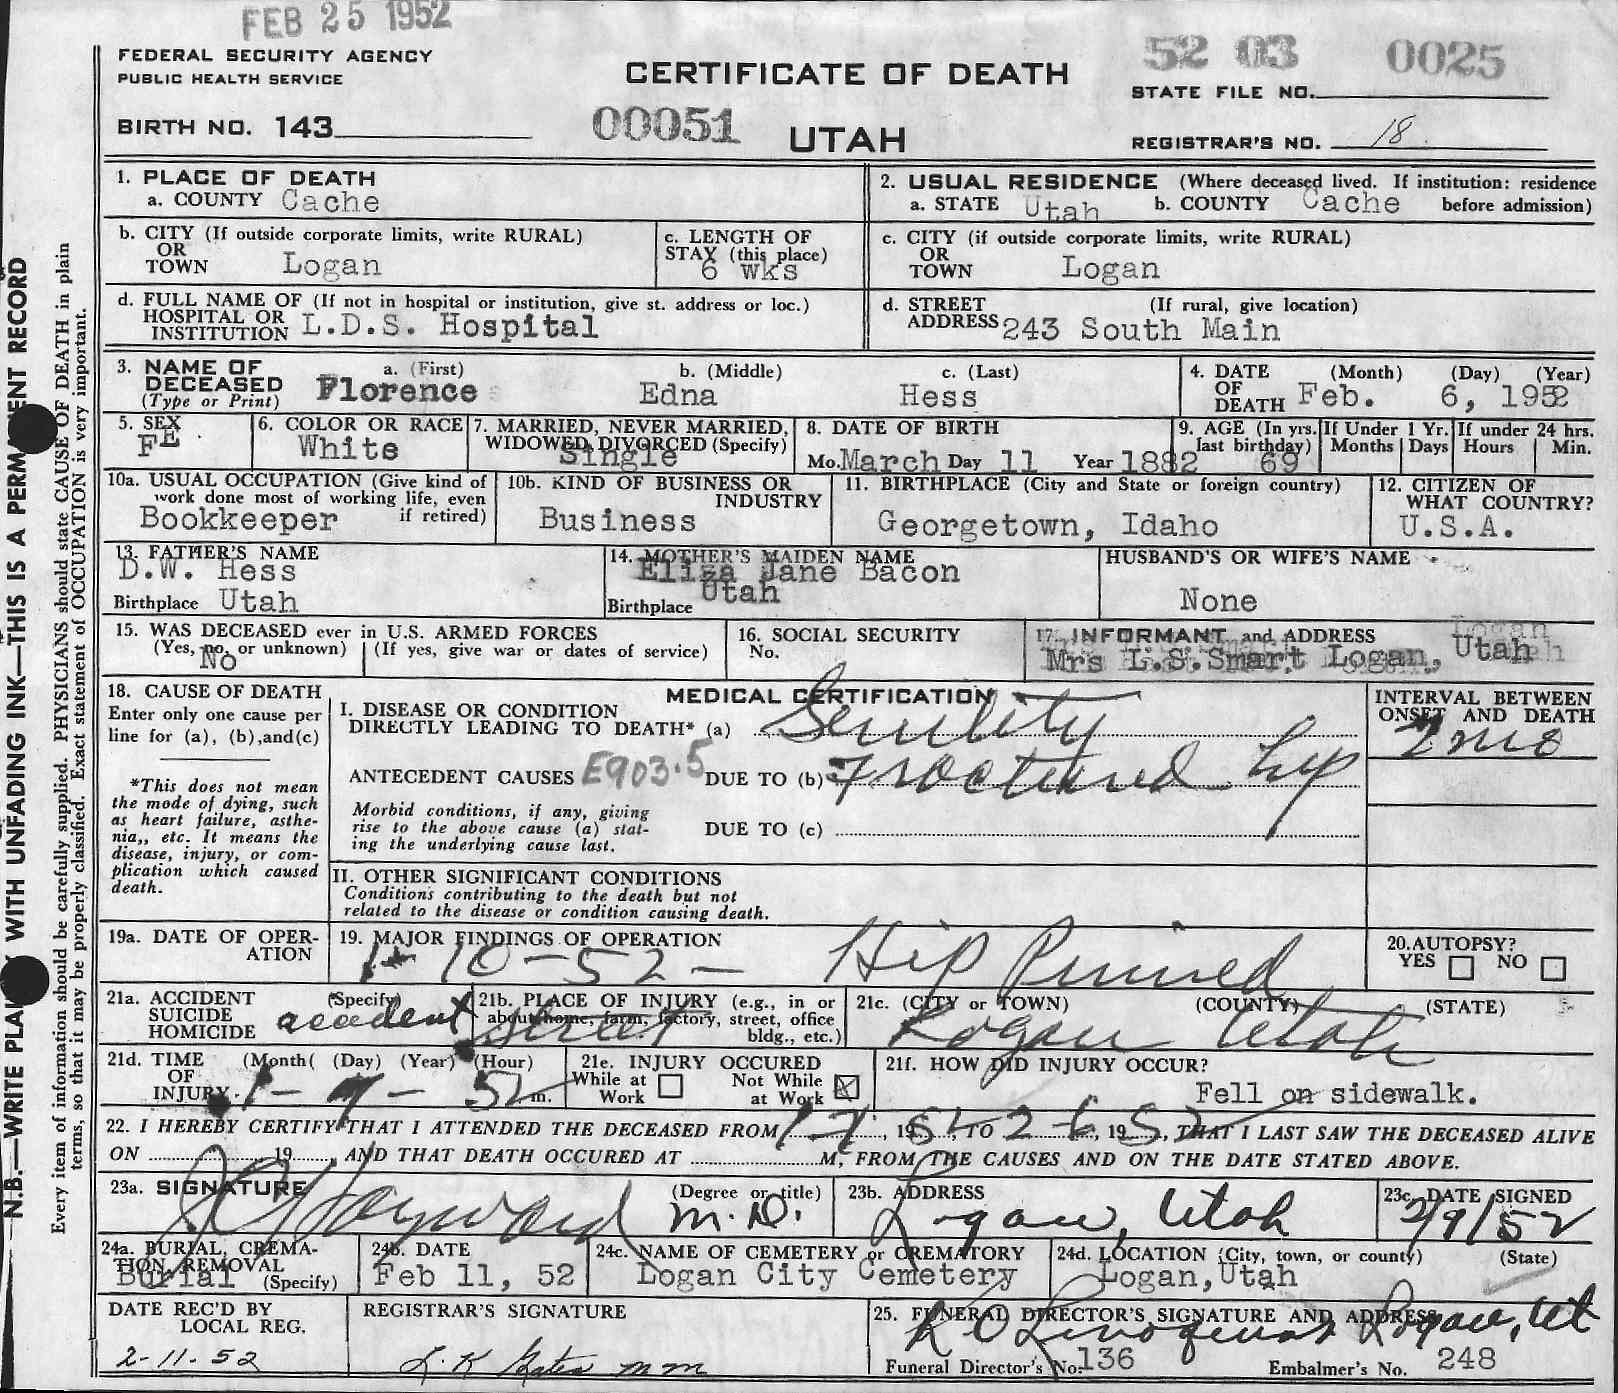 FEB 25 1952
FEDERAL SECURITY AGENCY
PUBLIC HEALTH SERVICE
CERTIFICATE OF DEATH
52 03 0025
STATE FILE NO.
BIRTH NO. 143
00051
UTAH
REGISTRAR'S NO. 18
1. PLACE OF DEATH
a. COUNTY Cache
2. USUAL RESIDENCE (Where deceased lived. If institution: residence
a. STATE Utah b. COUNTY Cache before admission)
b. CITY (If outside corporate limits, write RURAL)
OR
TOWN Logan
c. LENGTH OF
STAY (this place)
6 wks
c. CITY (if outside corporate limits, write RURAL)
OR
TOWN Logan
d. FULL NAME OF (If not in hospital or institution, give st. address or loc.)
HOSPITAL OR
INSTITUTION L.D.S. Hospital
d. STREET (If rural, give location)
ADDRESS 243 South Main
3. NAME OF
DECEASED
(Type or Print)
a. (First) b. (Middle) c. (Last)
Florence Edna Hess
4. DATE (Month) (Day) (Year)
OF
DEATH Feb. 6, 1952
5. SEX
FE
6. COLOR OR RACE
White
7. MARRIED, NEVER MARRIED,
WIDOWED, DIVORCED (Specify)
Single
8. DATE OF BIRTH
Mo. March Day 11 Year 1882
9. AGE (In yrs.
last birthday)
69
If Under 1 Yr.
Months Days
If under 24 hrs.
Hours Min.
10a. USUAL OCCUPATION (Give kind of
work done most of working life, even
if retired)
Bookkeeper
10b. KIND OF BUSINESS OR
INDUSTRY
Business
11. BIRTHPLACE (City and State or foreign country)
Georgetown, Idaho
12. CITIZEN OF
WHAT COUNTRY?
U.S.A.
13. FATHER'S NAME
D.W. Hess
Birthplace Utah
14. MOTHER'S MAIDEN NAME
Eliza Jane Bacon
Birthplace Utah
HUSBAND'S OR WIFE'S NAME
None
15. WAS DECEASED ever in U.S. ARMED FORCES
(Yes, no, or unknown) (If yes, give war or dates of service)
No
16. SOCIAL SECURITY
No.
17. INFORMANT and ADDRESS
Mrs L.S.Smart Logan, Utah
18. CAUSE OF DEATH
Enter only one cause per
line for (a), (b), and (c)
*This does not mean
the mode of dying, such
as heart failure, asthe-
nia,, etc. It means the
disease, injury, or com-
plication which caused
death.
MEDICAL CERTIFICATION
I. DISEASE OR CONDITION
DIRECTLY LEADING TO DEATH* (a) Senility
ANTECEDENT CAUSES E903.5 DUE TO (b) Fractured hip
Morbid conditions, if any, giving
rise to the above cause (a) stat-
ing the underlying cause last.
DUE TO (c)
INTERVAL BETWEEN
ONSET AND DEATH
2 mo
II. OTHER SIGNIFICANT CONDITIONS
Conditions contributing to the death but not
related to the disease or condition causing death.
19a. DATE OF OPER-
ATION
19. MAJOR FINDINGS OF OPERATION
1-10-52- Hip Pinned
20. AUTOPSY?
YES NO
21a. ACCIDENT (Specify)
SUICIDE
HOMICIDE accident
21b. PLACE OF INJURY (e.g., in or
about home, farm, factory, street, office
bldg., etc.)
street
21c. (CITY or TOWN) (COUNTY) (STATE)
Logan Utah
21d. TIME (Month( (Day) (Year) (Hour)
OF
INJURY 52 m.
21e. INJURY OCCURED
While at Work
Not While at Work
21f. HOW DID INJURY OCCUR?
Fell on sidewalk.
22. I HEREBY CERTIFY THAT I ATTENDED THE DECEASED FROM 1-7, 19 52, TO 2-6, 19 52, THAT I LAST SAW THE DECEASED ALIVE
ON 19 , AND THAT DEATH OCCURED AT M, FROM THE CAUSES AND ON THE DATE STATED ABOVE.
23a. SIGNATURE (Degree or title)
Hayward M.D.
23b. ADDRESS
Logan, Utah
23c. DATE SIGNED
2/9/52
24a. BURIAL, CREMA-
TION, REMOVAL
(Specify)
Burial
24b. DATE
Feb 11, 52
24c. NAME OF CEMETERY or CREMATORY
Logan City Cemetery
24d. LOCATION (City, town, or county) (State)
Logan, Utah
DATE REC'D BY
LOCAL REG.
2-11-52
REGISTRAR'S SIGNATURE
25. FUNERAL DIRECTOR'S SIGNATURE AND ADDRESS
Logan, Ut
Funeral Director's No. 136 Embalmer's No. 248
N.B.—WRITE WITH UNFADING INK—THIS IS A PERMANENT RECORD
Every item of information should be carefully supplied. PHYSICIANS should state CAUSE OF DEATH in plain
terms, so that it may be properly classified. Exact statement of OCCUPATION is very important.